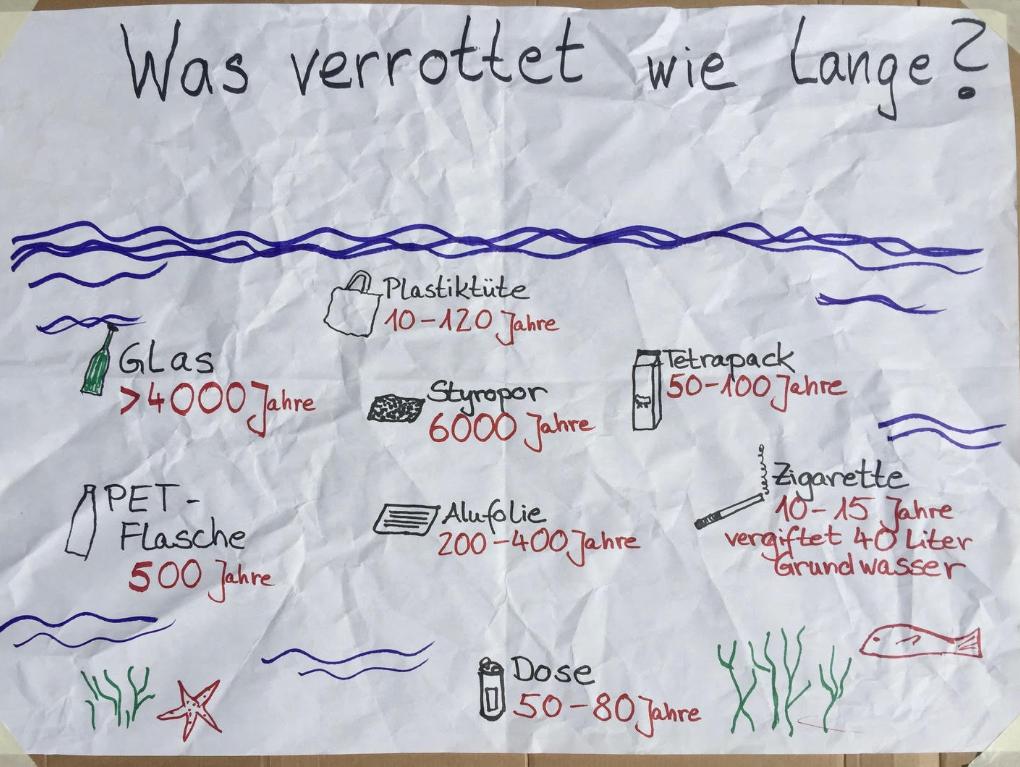 Was verrottet wie lange?
Plastiktüte
10-120 Jahre
Glas
>4000 Jahre
Styropor
6000 Jahre
Tetrapack
50-100 Jahre
PET-
Flasche
500 Jahre
Alufolie
200-400 Jahre
Zigarette
10-15 Jahre
vergiftet 40 Liter
Grundwasser
Dose
50-80 Jahre